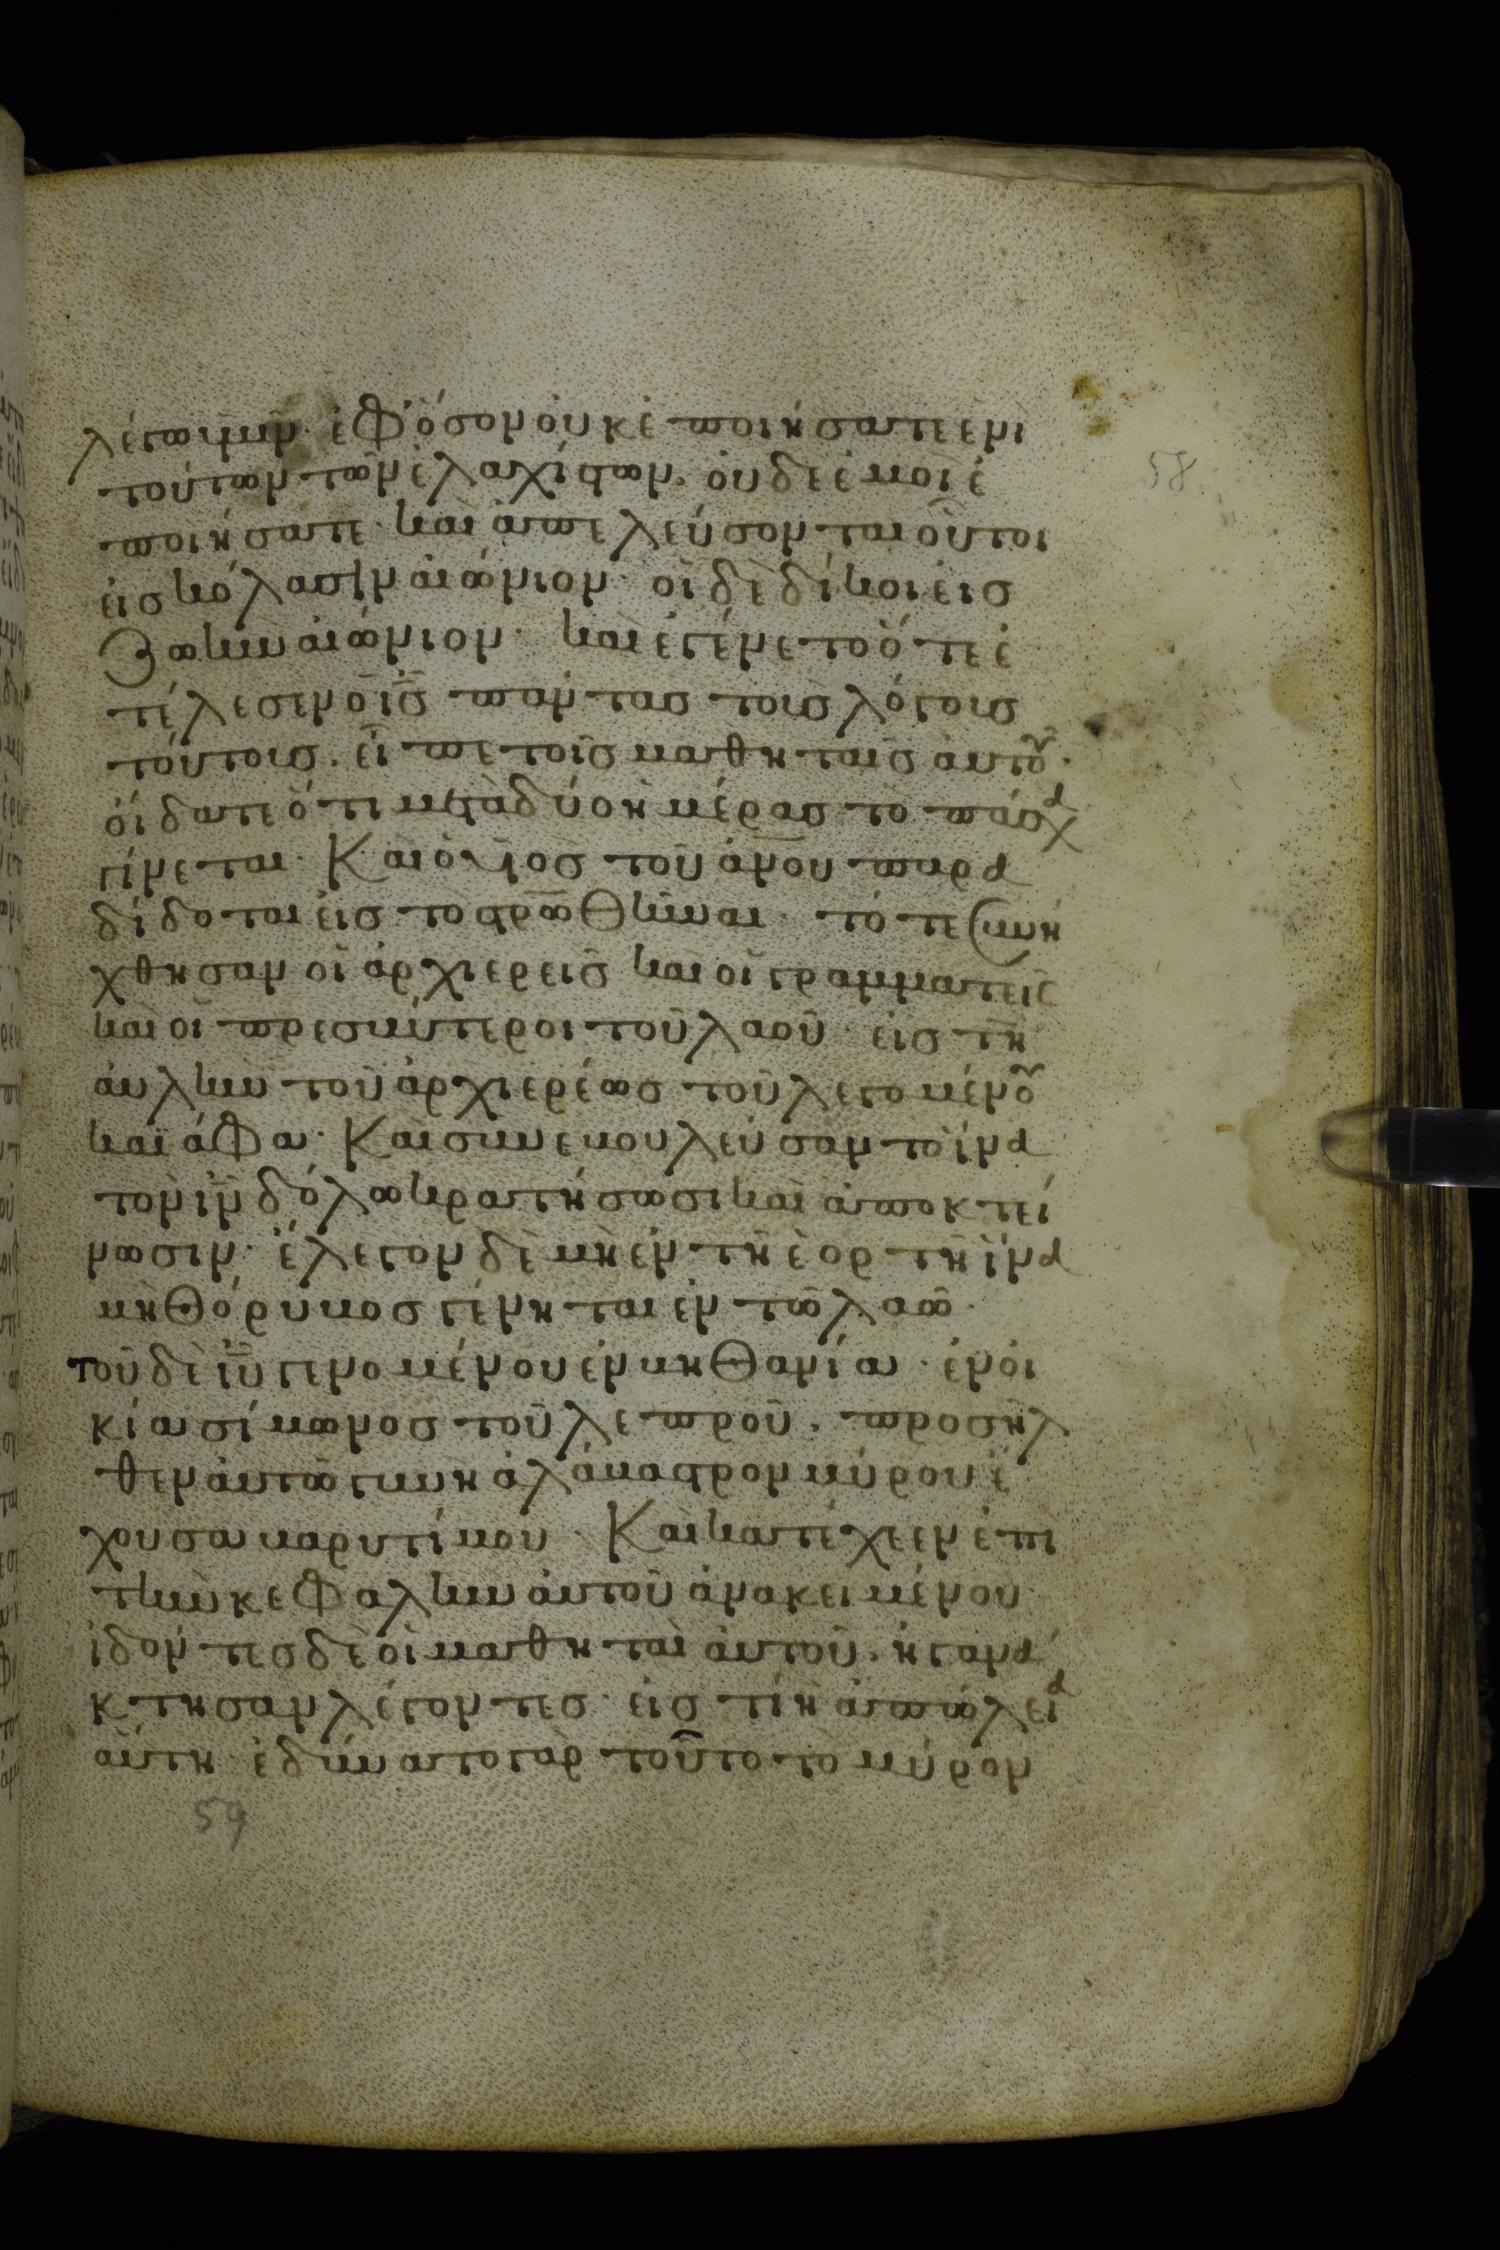 λέγω ὑμῖν· ἐφ' ὅσον οὐκ ἐποιήσατε ἑνὶ
τούτων τῶν ἐλαχίστων· οὐδὲ ἐμοὶ ἐ
ποιήσατε· καὶ ἀπελεύσονται οὗτοι
εἰς κόλασιν αἰώνιον· οἱ δὲ δίκαιοι εἰς
ζωὴν αἰώνιον· καὶ ἐγένετο ὅτε ἐ
τέλεσεν ὁ ις πάντας τοὺς λόγους
τούτους· εἶπε τοῖς μαθηταῖς αὐτοῦ·
οἴδατε ὅτι μετὰ δύο ἡμέρας τὸ πάσχα
γίνεται· Καὶ ὁ υἱος τοῦ ανου παρα
δίδοται εἰς τὸ στρωθῆναι· τότε συνή
χθησαν οἱ ἀρχιερεῖς καὶ οἱ γραμματεῖς
καὶ οἱ πρεσβύτεροι τοῦ λαοῦ εἰς τὴ
αὐλὴν τοῦ ἀρχιερέως τοῦ λεγομένου
καϊάφα· Καὶ συνεβουλεύσαντο ἵνα
τὸν ιν δόλω κρατήσωσι καὶ ἀποκτεί
νωσιν· ἔλεγον δὲ μὴ ἐν τῆ ἑορτῆ ἵνα
μὴ θόρυβος γένηται ἐν τῶ λαῶ·
τοῦ δὲ ιυ γενομένου ἐν βηθανία· ἐν οἰ
κία σίμωνος τοῦ λεπροῦ· προσῆλ
θεν αὐτῶ γυνὴ ἀλάβαστρον μύρου ἔ
χουσα βαρυτίμου· Καὶ κατέχεεν ἐπι
τὴν κεφαλὴν αὐτοῦ ἀνακειμένου
ἰδόντες δὲ οἱ μαθηταὶ αὐτοῦ· ἠγανα
κτησαν λέγοντες· εἰς τί ἡ ἀπώλεια
αὕτη· ἐδύνατο γὰρ τοῦτο τὸ μύρον
58
59